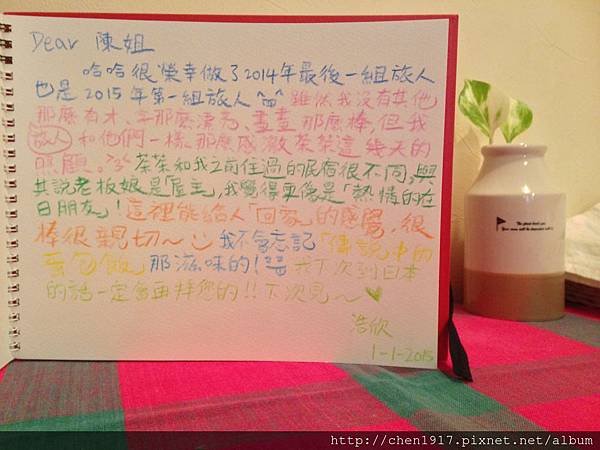 Dear 陳姐
哈哈很榮幸做了2014年最後一組旅人
也是2015年第一組旅人 ^^ 雖然我沒有其他
那麼有才、字那麼漂亮、畫畫那麼棒，但我
旅人 和他們一樣那麼感激茶茶這幾天的
照顧。茶茶和我之前住過的民宿很不同，與
其說老板娘是「屋主」，我覺得更像是「熱情的在
日朋友」！這裡能給人「回家」的感覺，很
棒很親切～ 我不會忘記「傳說中的
蛋包飯」那滋味的！我下次到日本
的話一定會再拜您的!! 下次見～♥
浩欣
1-1-2015
http://chen1917.pixnet.net/album